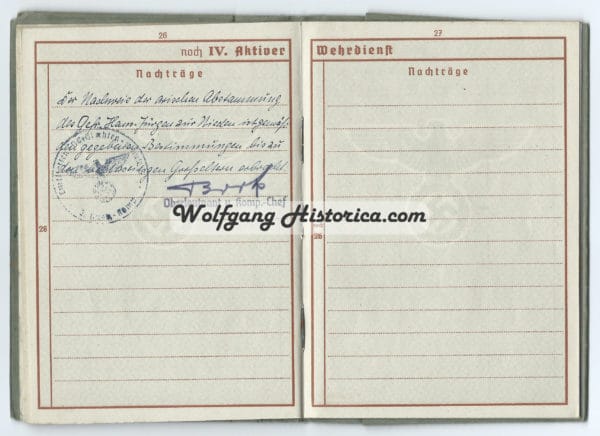 26
noch IV. Aktiver
Nachträge
Der Nachweis der arischen Abstammung
des Gefr. Hans Jürgen zur Nieden ist gemäß
den gegebenen Bestimmungen bis zu
den Großeltern erbracht.
Oberleutnant u. Komp.-Chef
28
27
Wehrdienst
Nachträge
28
Wolfgang Historica.com